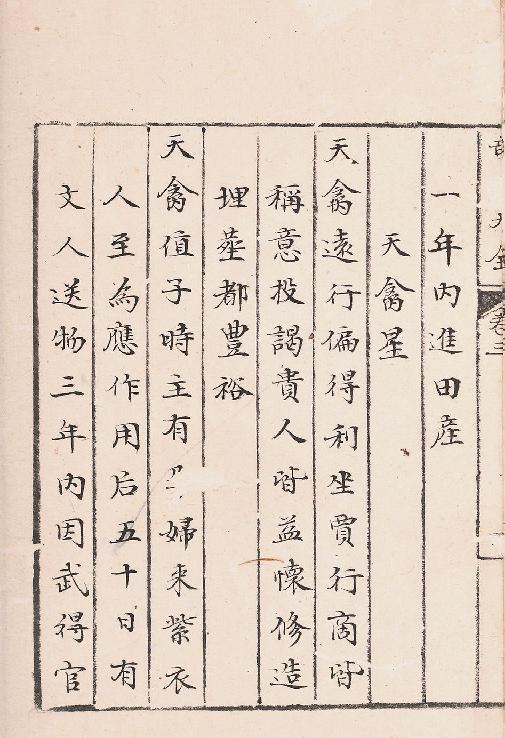 卷三
一年內進田産
天禽星
天禽遠行偏得利坐賈行商皆
稱意投謁貴人皆益懷修造
埋葬都豊裕
天禽值子時主有婦来紫衣
人至為應作用后五十日有
文人送物三年内因武得官